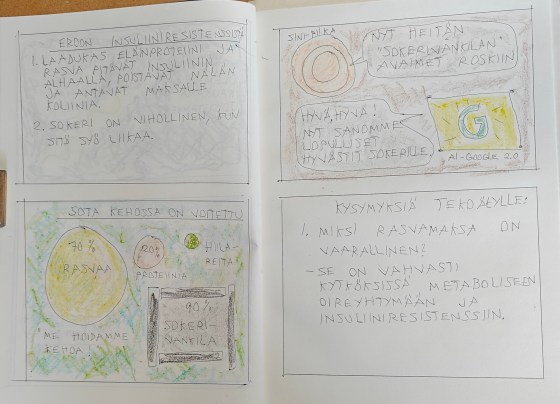 EROON INSULIINIRESISTENSSISTÄ
1. LAADUKAS ELÄINPROTEIINI JA
RASVA PITÄVÄT INSULIININ
ALHAALLA, POISTAVAT NÄLÄN
JA ANTAVAT MAKSALLE
KOLIINIA.
2. SOKERI ON VIHOLLINEN, KUN
SITÄ SYÖ LIIKAA.
SOTA KEHOSSA ON VOITETTU
70 %
RASVAA
20%
PROTEIINIA
HIILA-
REITA
"ME HOIDAMME
KEHOA!"
90%
SOKERI-
VANKILA
SINI-PILKA
NYT HEITÄN
"SOKERIVANKILAN"
AVAIMET ROSKIIN
HYVÄ, HYVÄ!
NYT SANOMME
LOPULLISET
HYVÄSTIT SOKERILLE
G
AI-GOOGLE 2.0
KYSYMYKSIÄ TEKOÄLYLLE:
1. MIKSI RASVAMAKSA ON
VAARALLINEN?
- SE ON VAHVASTI
KYTKÖKSISSÄ METABOLISEEN
OIREYHTYMÄÄN JA
INSULIINIRESISTENSSIIN.